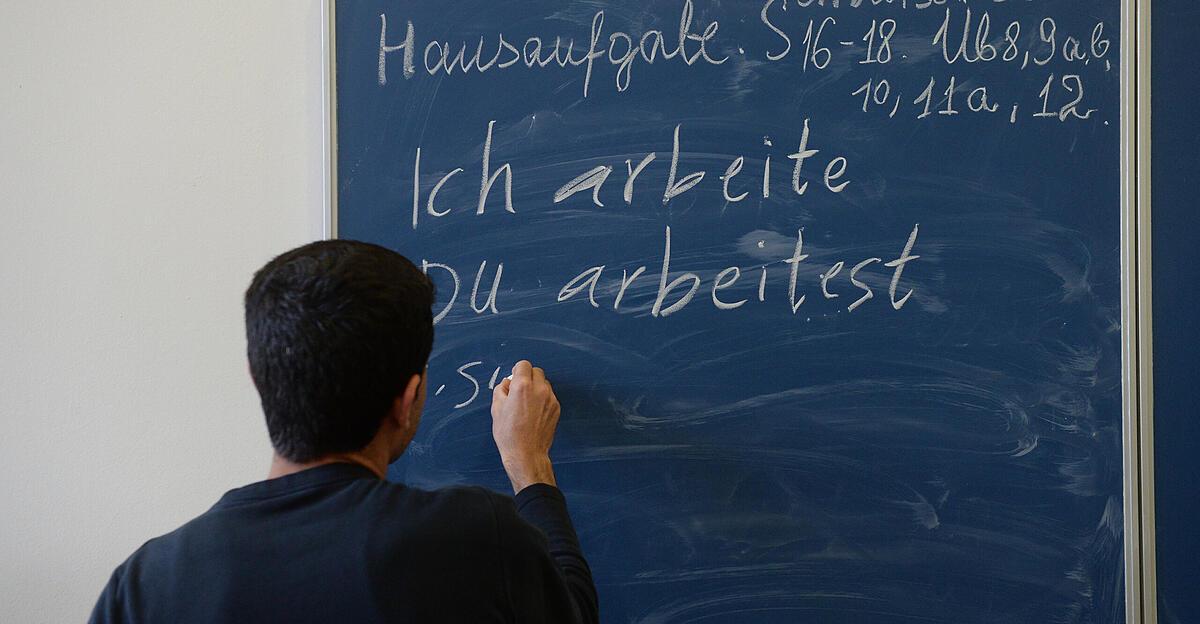 Hausaufgabe. S 16-18. Üb 8, 9a,b,
10, 11a, 12.
Ich arbeite
Du arbeitest